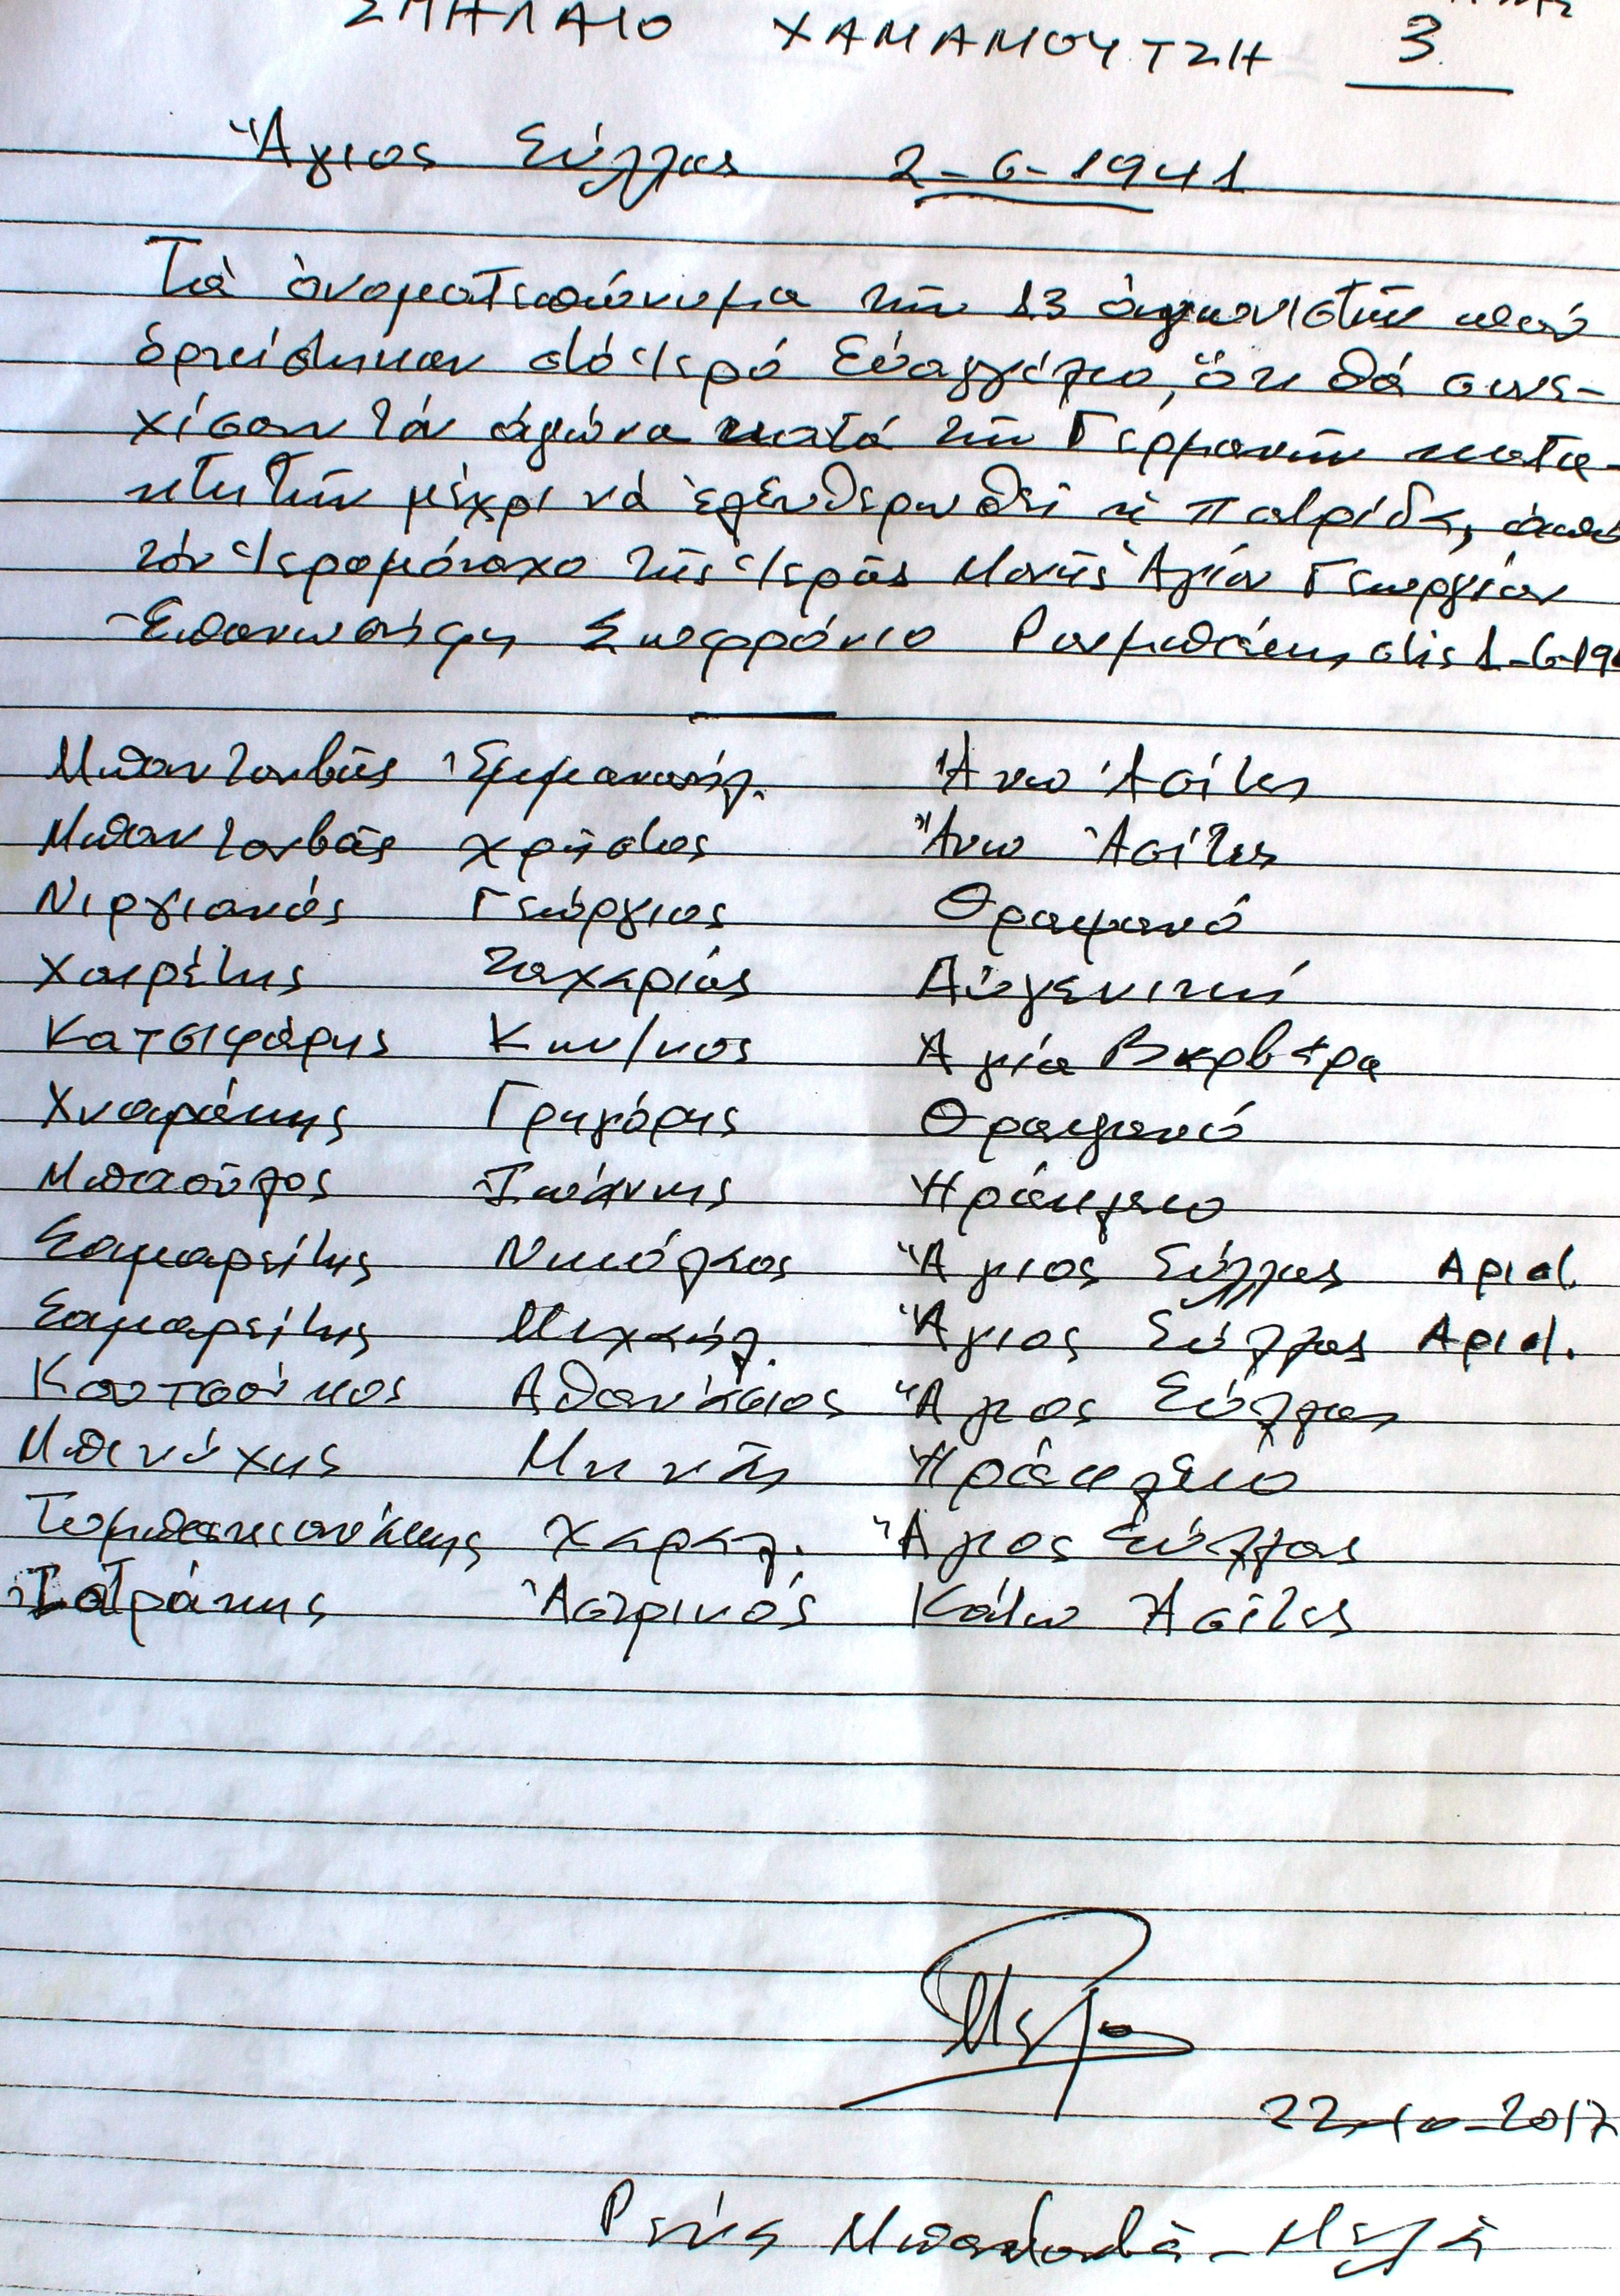 ΣΠΗΛΑΙΟ ΧΑΜΑΜΟΥΤΖΗ 3
Ἅγιος Σύλλας 2-6-1941
Τά ὀνοματεπώνυμα τῶν 13 ἀγωνιστῶν πού
ὁρκίστηκαν στό Ἱερό Εὐαγγέλιο, ὅτι θά συνε-
χίσουν τόν ἀγώνα κατά τῶν Γερμανῶν κατα-
κτητῶν μέχρι νά ἐλευθερωθεῖ ἡ πατρίδα, ἀπό
τόν Ἱερομόναχο τῆς Ἱερᾶς Μονῆς Ἁγίου Γεωργίου
Ἐπανωσήφη Σωφρόνιο στίς 1-6-194
Μπαντουβᾶς Ἐμμανουήλ. Ἄνω Ἀσίτες
Μπαντουβᾶς Χρῆστος Ἄνω Ἀσίτες
Νιργιανός Γεώργιος Θραψανό
Χαιρέτης Ζαχαρίας Αὐγενική
Κατσιφάρης Κων/νος Ἁγία Βαρβάρα
Χναράκης Γρηγόρης Θραψανό
Μπαούλος Ἰωάννης Ἡράκλειο
Σαμαρείτης Νικόλαος Ἅγιος Σύλλας Αριστ.
Σαμαρείτης Μιχαήλ. Ἅγιος Σύλλας Αριστ.
Κουτσούκος Ἀθανάσιος Ἅγιος Σύλλας
Μηνᾶς Ἡράκλειο
Χαραλ. Ἅγιος Σύλλας
Ἰατράκης Ἀστρινός Κάτω Ἀσίτες
22-10-2017
Ρένα Μπαντουβᾶ-Μελᾶ